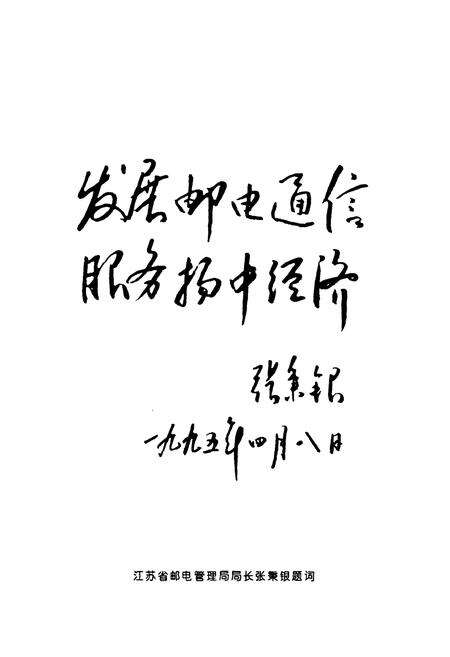 发展邮电通信
服务扬中经济
张秉银
一九九五年四月八日
江苏省邮电管理局局长张秉银题词